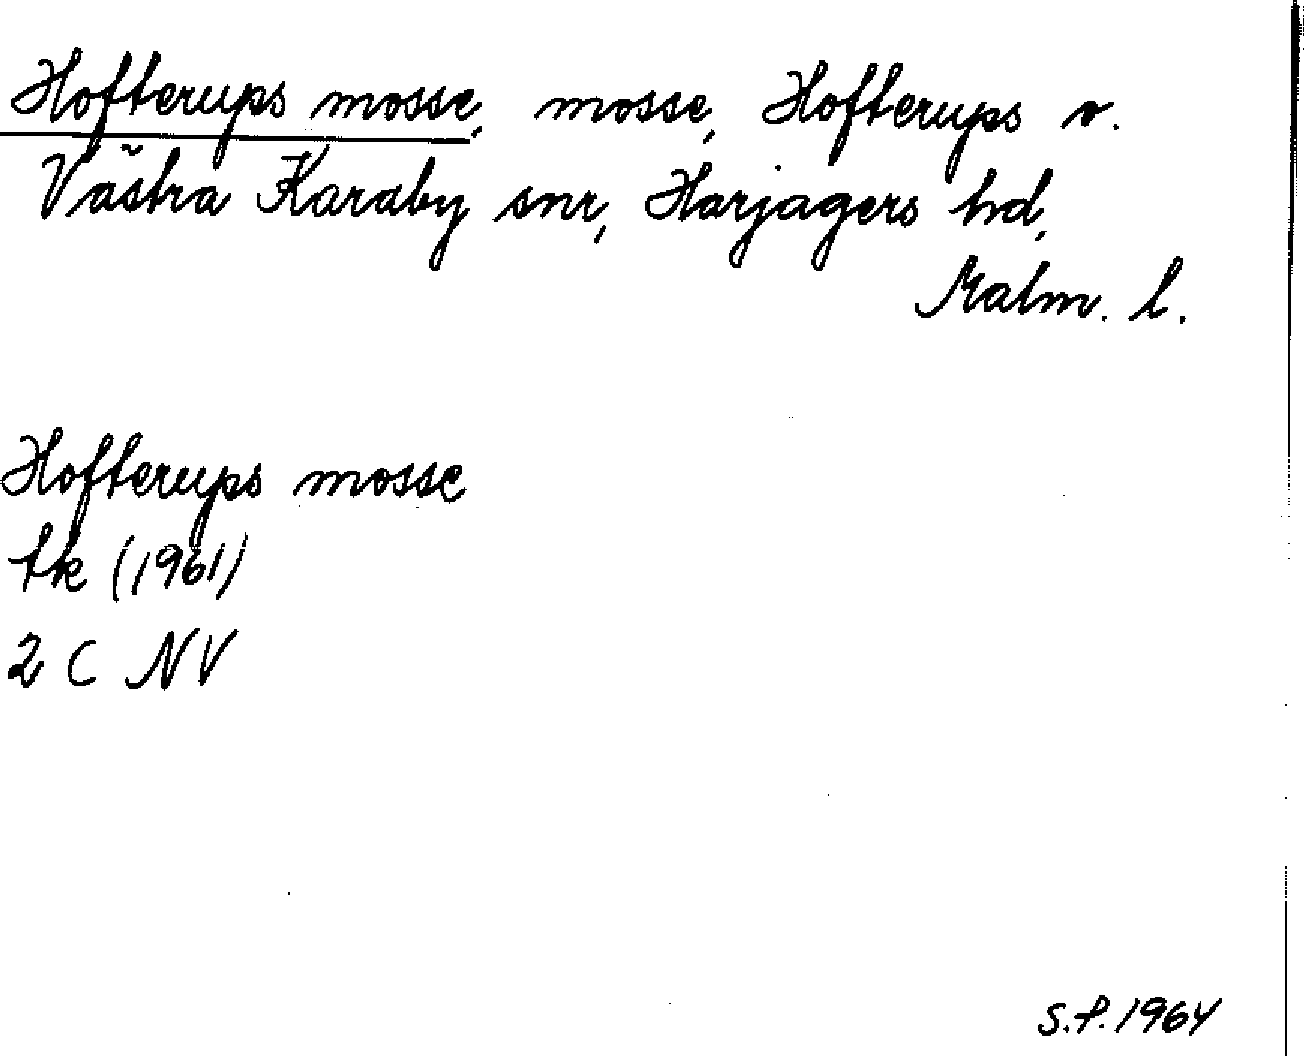 Hofterups mosse, mosse, Hofterups o.
Västra Karaby snr, Harjagers hd,
Malm. l.
Hofterups mosse
tk (1961)
2 C NV
S.P. 1964